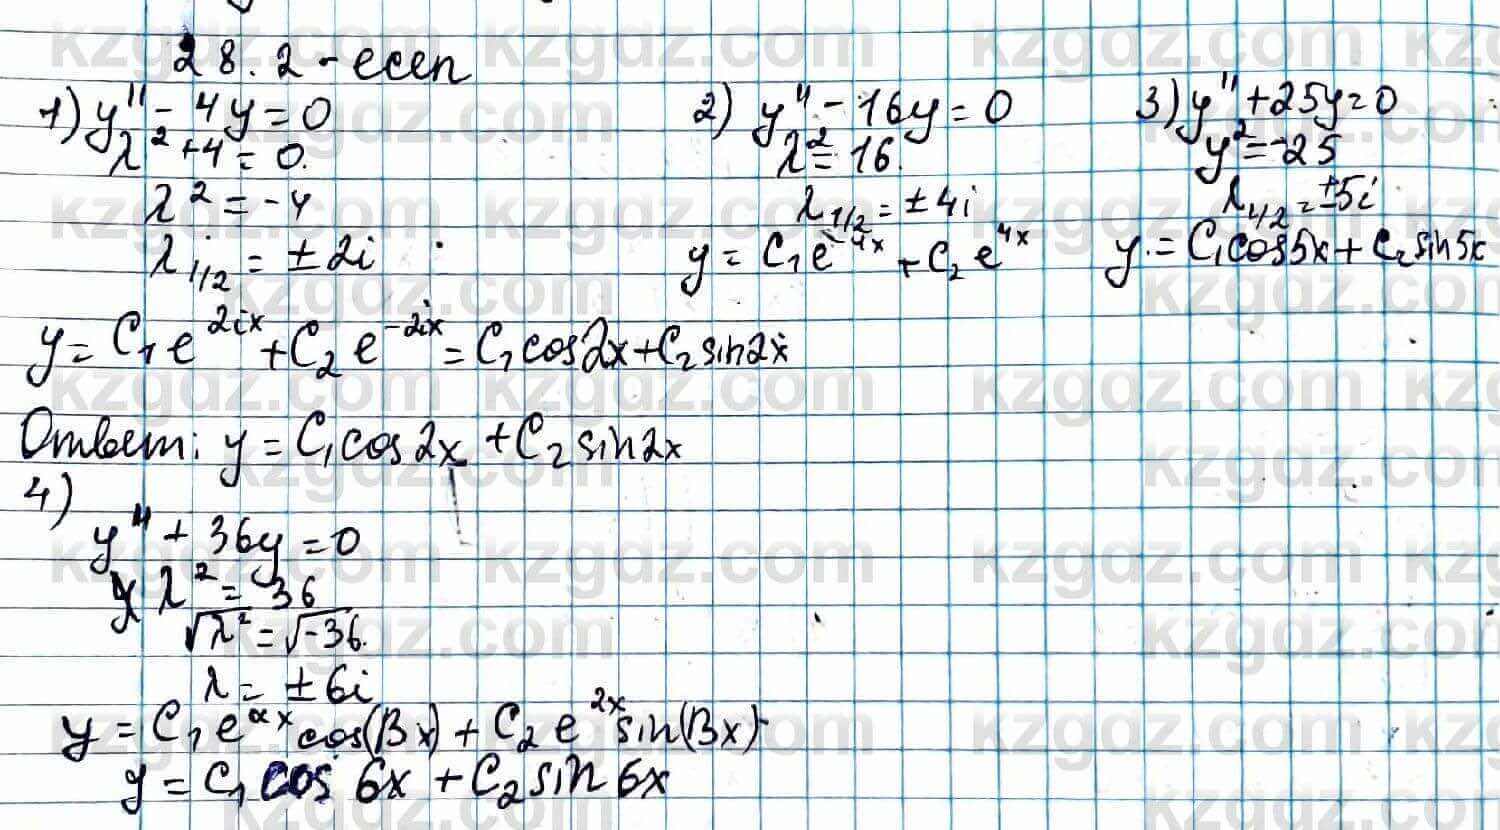 28.2-есеп
1) y'' - 4y = 0
λ² + 4 = 0.
λ² = -4
λ₁/₂ = ± 2i
y = C₁e^{2ix} + C₂e^{-2ix} = C₁cos2x + C₂sin2x
Ответ: y = C₁cos2x + C₂sin2x
2) y'' - 16y = 0
λ² = 16.
λ₁/₂ = ± 4i
y = C₁e^{-4x} + C₂e^{4x}
3) y'' + 25y = 0
y² = -25
λ₁/₂ = ±5i
y = C₁cos5x + C₂sin5x
4)
y'' + 36y = 0
λ² = 36
√λ² = √-36.
λ = ± 6i
y = C₁e^{αx}cos(Bx) + C₂e^{2x}sin(Bx)
y = C₁cos 6x + C₂sin 6x
kzgdz.com